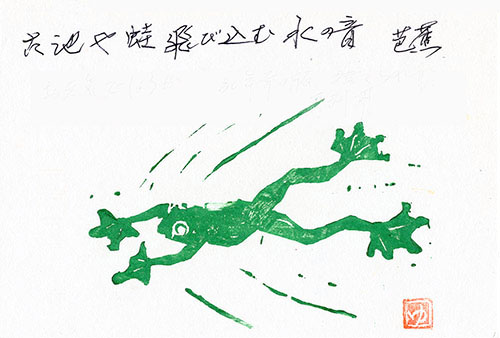 古池や蛙飛び込む水の音 芭蕉
ゆ